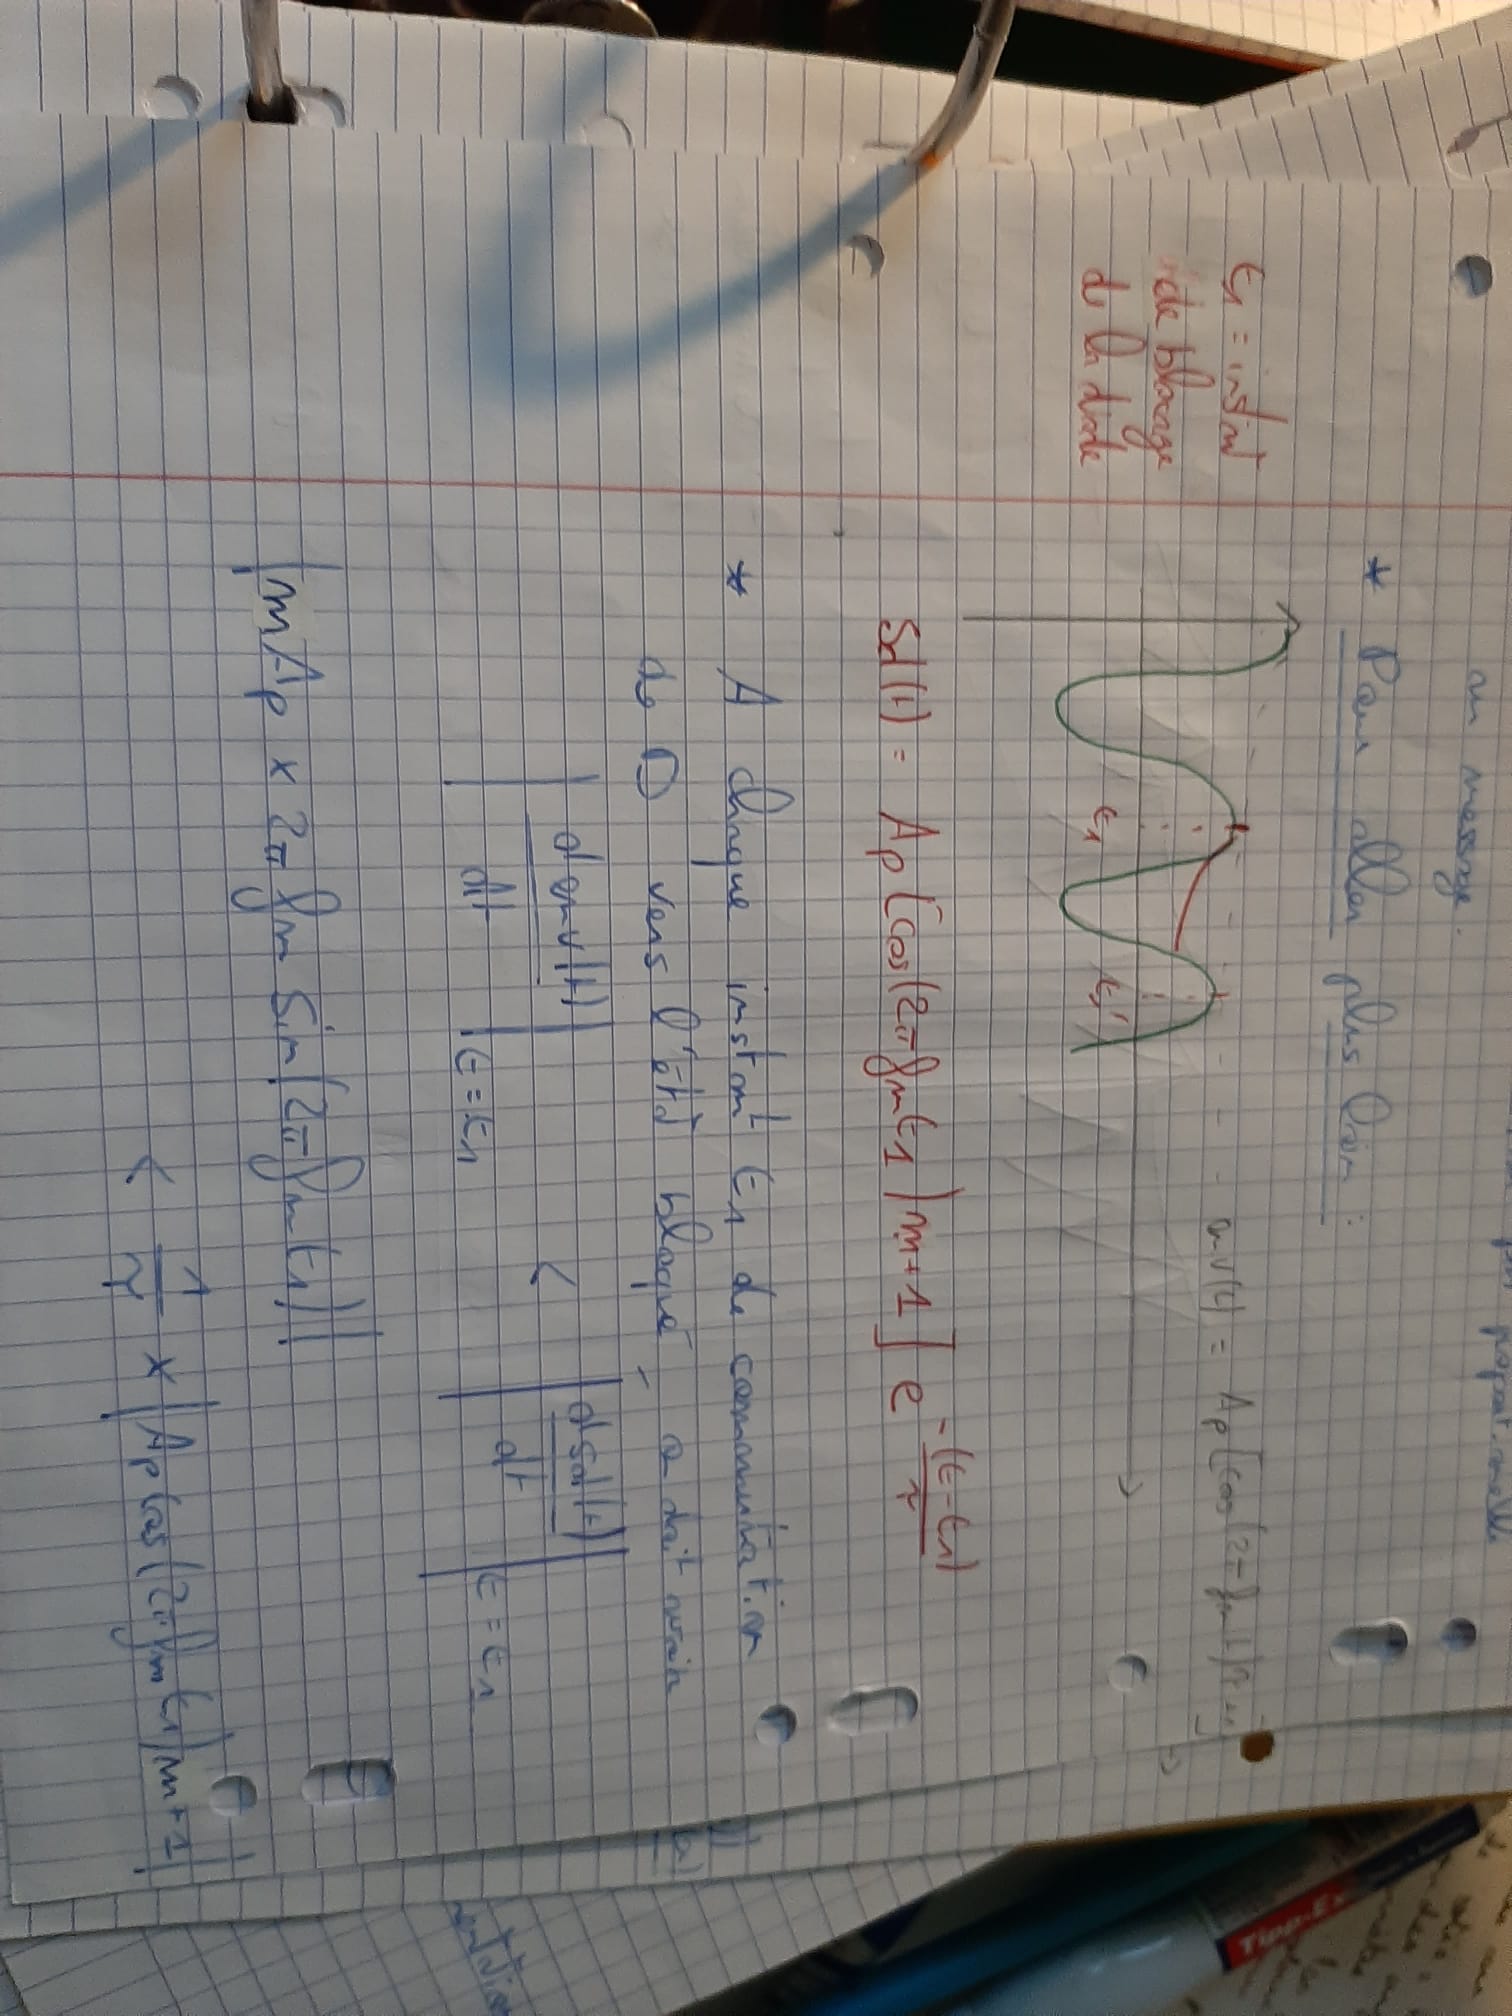 un message.
* Pour aller plus loin :
t1 = instant
de blocage
de la diode
env(t) = Ap [cos(2π fm t)m+1]
t1
t1'
Sd(t) = Ap [cos(2π fm t1) m+1] e -(t-t1)/τ
* A chaque instant t1 de commutation
de D vers l'état bloqué, on doit avoir
|d env(t)/dt| t=t1 < |dsd(t)/dt| t=t1
|m Ap x 2π fm Sin(2π fm t1)|
< 1/τ x |Ap cos(2π fm t1)m+1|
Tipp-Ex